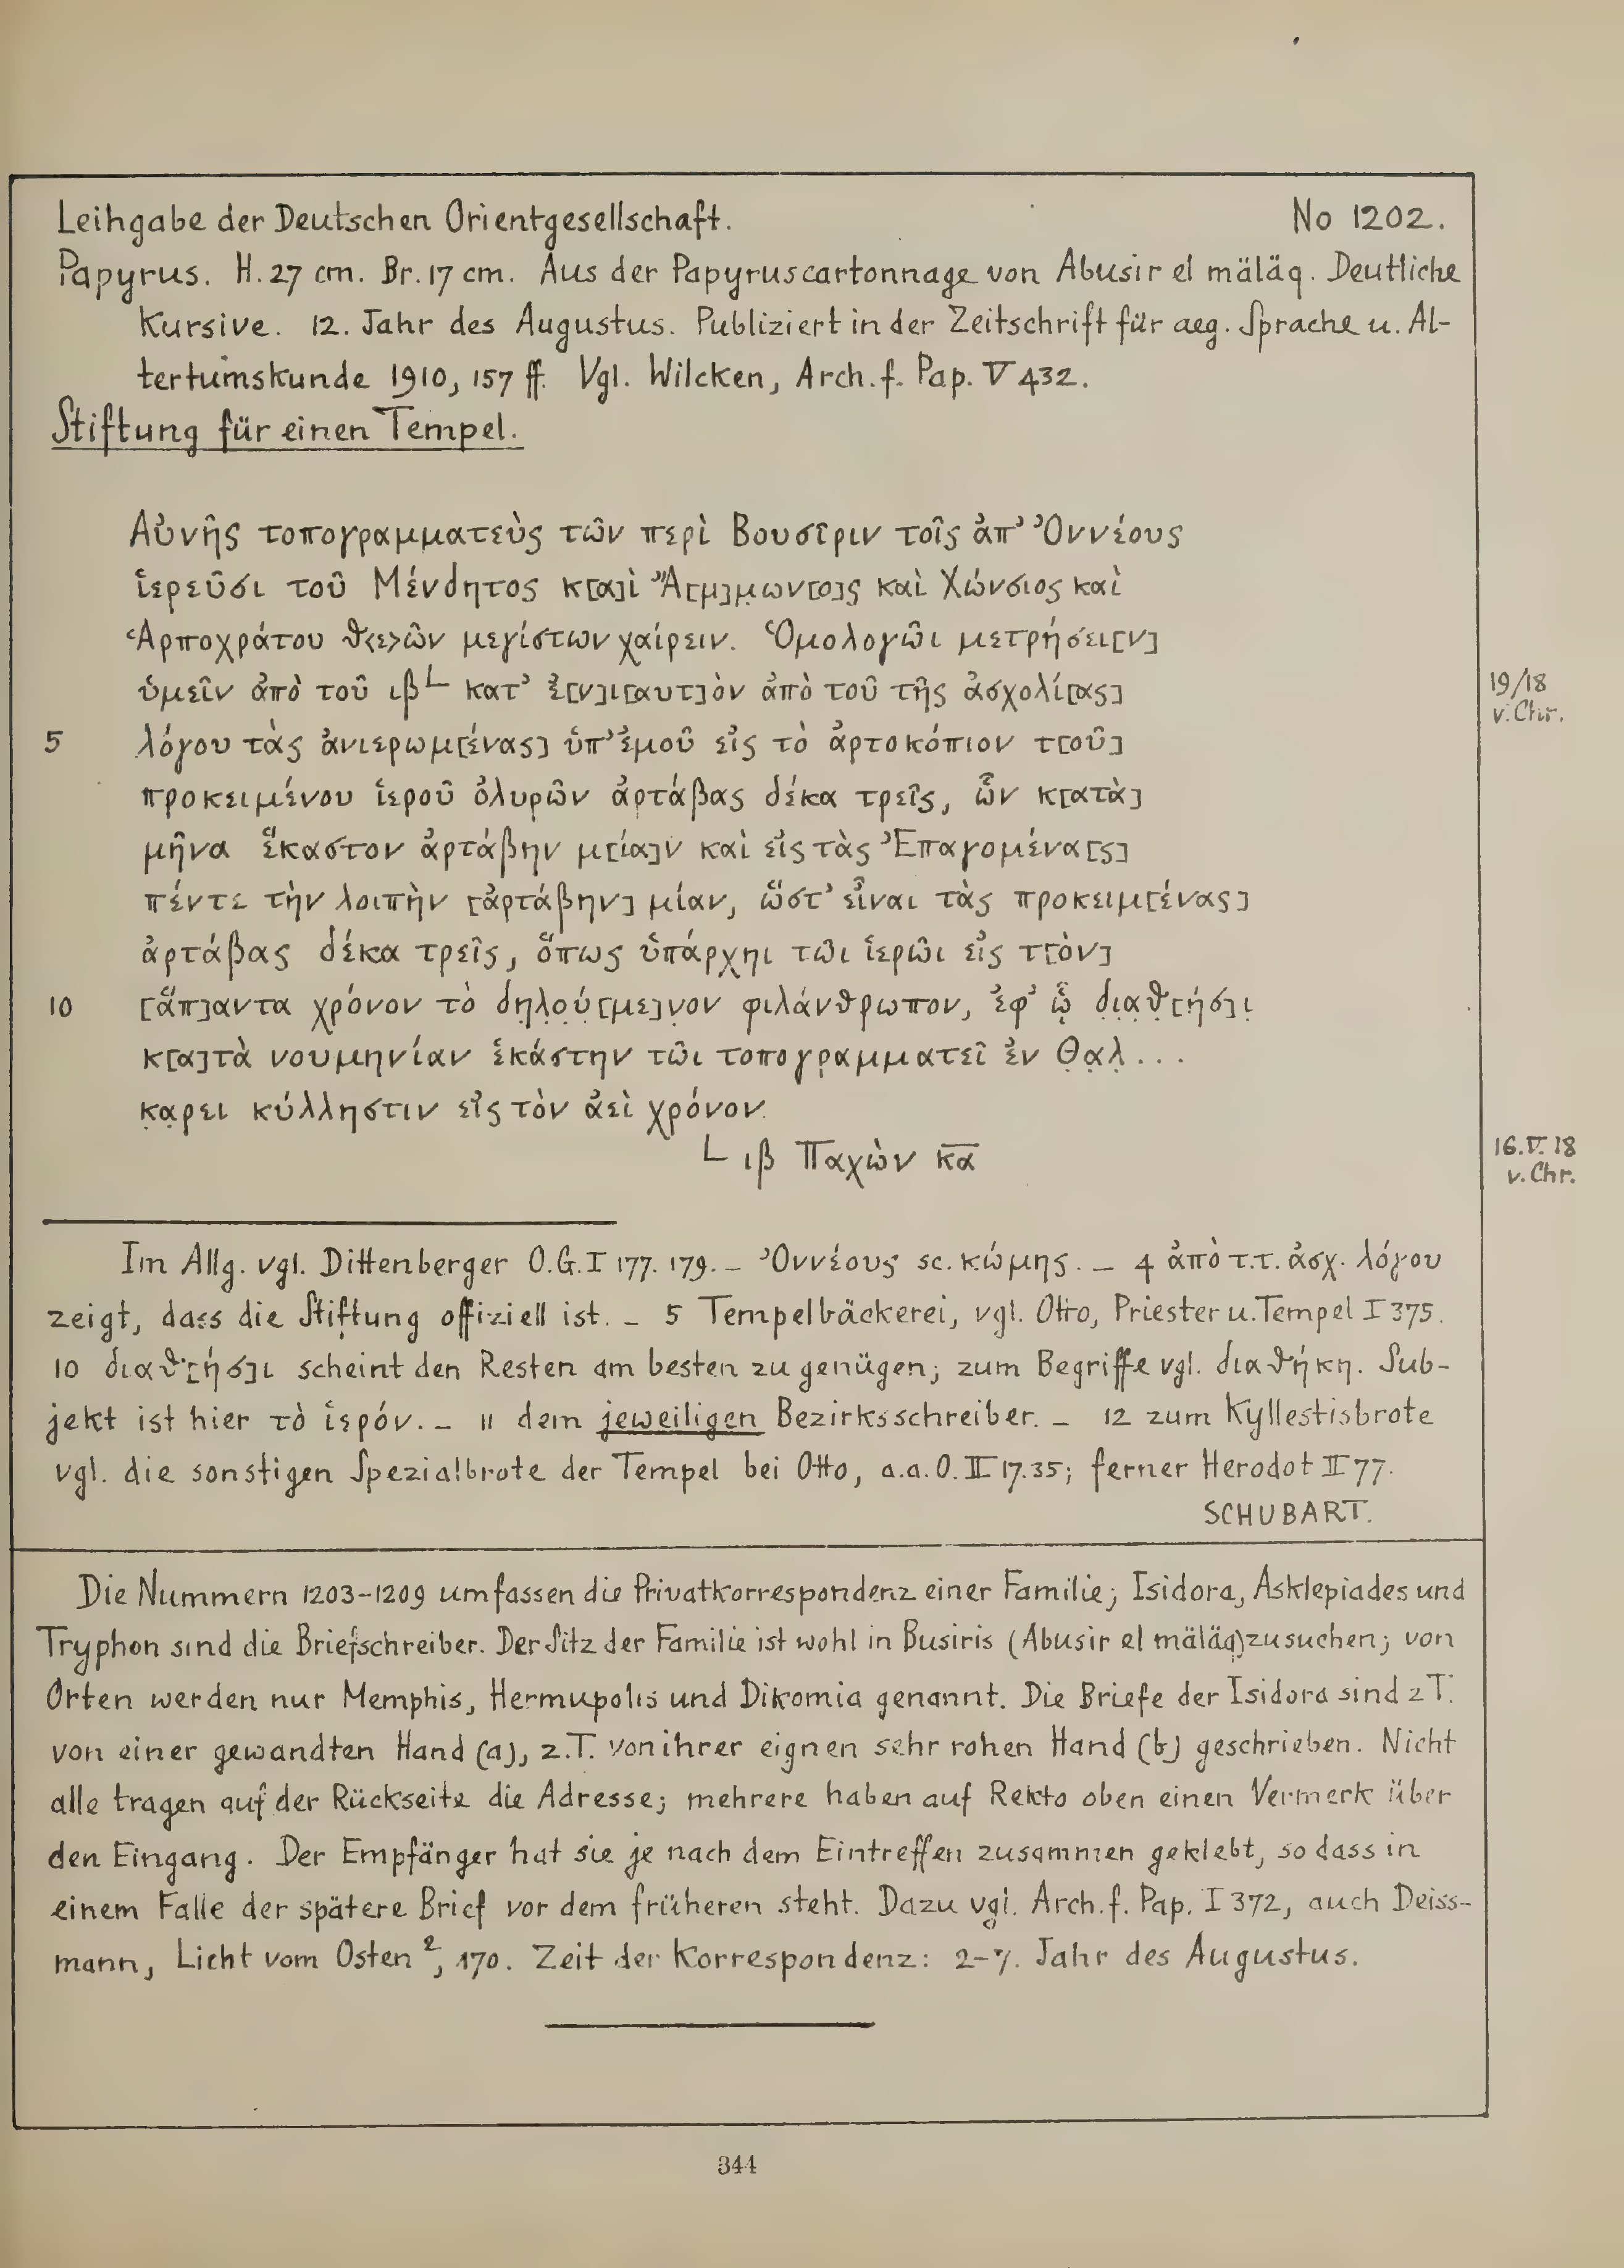 Leihgabe der Deutschen Orientgesellschaft. No 1202.
Papyrus. H. 27 cm. Br. 17 cm. Aus der Papyruscartonnage von Abusir el mäläq. Deutliche
Kursive. 12. Jahr des Augustus. Publiziert in der Zeitschrift für aeg. Sprache u. Al-
tertumskunde 1910, 157 ff. Vgl. Wilcken, Arch. f. Pap. V 432.
Stiftung für einen Tempel.
Αὐνῆς τοπογραμματεὺς τῶν περὶ Βουσῖριν τοῖς ἀπ’ Ὀννέους
ἱερεῦσι τοῦ Μένδητος κ[α]ὶ Ἄ[μ]μ̣ων[ο]ς καὶ Χώνσιος καὶ
Ἁρποχράτου θ<ε>ῶν μεγίστων χαίρειν. Ὁμολογῶι μετρήσει[ν]
ὑμεῖν ἀπὸ τοῦ ιβ L κατ’ ἐ[ν]ι[αυτ]ὸν ἀπὸ τοῦ τῆς ἀσχολί[ας]
19/18
v. Chr.
5 λόγου τὰς ἀνιερωμ[ένας] ὑπ’ ἐμοῦ εἰς τὸ ἀρτοκόπιον τ[οῦ]
προκειμένου ἱεροῦ ὀλυρῶν ἀρτάβας δέκα τρεῖς, ὧν κ[ατὰ]
μῆνα ἕκαστον ἀρτάβην μ[ία]ν καὶ εἰς τὰς Ἐπαγομένα[ς]
πέντε τὴν λοιπὴν [ἀρτάβην] μίαν, ὥστ’ εἶναι τὰς προκειμ[ένας]
ἀρτάβας δέκα τρεῖς, ὅπως ὑπάρχηι τῶι ἱερῶι εἰς τ[ὸν]
10 [ἅπ]αντα χρόνον τὸ δη̣λ̣ο̣ύ̣[με]ν̣ον φιλάνθρωπον, ἐφ’ ᾧ̣ δ̣ι̣α̣θ̣[ήσ]ι̣
κ[α]τὰ νουμηνίαν ἑκάστην τῶι τοπογρ̣αμματεῖ ἐν Θ̣α̣λ̣...
κ̣α̣ρει κύλληστιν εἰς τὸν ἀεὶ χρόνον.
L ιβ Παχὼν κ̅α̅
16. V. 18
v. Chr.
Im Allg. vgl. Dittenberger O.G. I 177. 179. – Ὀννέους sc. κώμης. – 4 ἀπὸ τ. τ. ἀσχ. λόγου
zeigt, dass die Stiftung offiziell ist. – 5 Tempelbäckerei, vgl. Otto, Priester u. Tempel I 375.
10 διαθ[ήσ]ι scheint den Resten am besten zu genügen; zum Begriffe vgl. διαθήκη. Sub-
jekt ist hier τὸ ἱερόν. – 11 dem jeweiligen Bezirksschreiber. – 12 zum Kyllestisbrote
vgl. die sonstigen Spezialbrote der Tempel bei Otto, a.a.O. II 17. 35; ferner Herodot II 77.
SCHUBART.
Die Nummern 1203-1209 umfassen die Privatkorrespondenz einer Familie; Isidora, Asklepiades und
Tryphon sind die Briefschreiber. Der Sitz der Familie ist wohl in Busiris (Abusir el mäläq) zu suchen; von
Orten werden nur Memphis, Hermupolis und Dikomia genannt. Die Briefe der Isidora sind z T.
von einer gewandten Hand (a), z. T. von ihrer eignen sehr rohen Hand (b) geschrieben. Nicht
alle tragen auf der Rückseite die Adresse; mehrere haben auf Rekto oben einen Vermerk über
den Eingang. Der Empfänger hat sie je nach dem Eintreffen zusammen geklebt, so dass in
einem Falle der spätere Brief vor dem früheren steht. Dazu vgl. Arch. f. Pap. I 372, auch Deiss-
mann, Licht vom Osten ², 170. Zeit der Korrespondenz: 2-7. Jahr des Augustus.
344